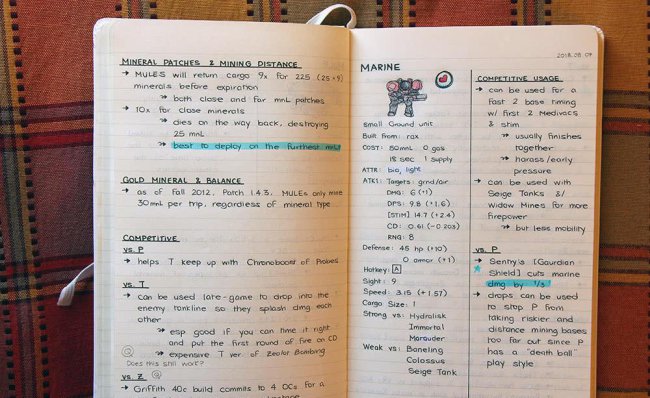 MINERAL PATCHES & MINING DISTANCE
→ MULES will return cargo 9x for 225 (25×9)
minerals before expiration
↠ both close and far mnl patches
→ 10x for close minerals
↠ dies on the way back, destroying
25 mnl
↠ best to deploy on the furthest mnl
GOLD MINERAL & BALANCE
→ as of Fall 2012, Patch 1.4.3, MULEs only mine
30mnl per trip, regardless of mineral type
COMPETITIVE
vs. P
→ helps T keep up with Chronoboost of Probes
vs. T
→ can be used late-game to drop into the
enemy tankline so they splash dmg each
other
↠ esp good if you can time it right
and put the first round of fire on CD
↠ expensive T ver of Zealot Bombing
Does this still work?
vs. Z
→ Griffith 40c build commits to 4 OCs for a
2018.08.07
MARINE
Small Ground unit
Built from: rax
COST: 50mnl 0 gas
18 sec 1 supply
ATTR: bio, light
ATK1: Targets: grnd/air
DMG: 6 (+1)
DPS: 9.8 (+1.6)
[STIM] 14.7 (+2.4)
CD: 0.61 (-0.203)
RNG: 5
Defense: 45 hp (+10)
0 armor (+1)
Hotkey: A
Sight: 9
Speed: 3.15 (+1.57)
Cargo Size: 1
Strong vs: Hydralisk
Immortal
Marauder
Weak vs: Baneling
Colossus
Seige Tank
COMPETITIVE USAGE
→ can be used for a
fast 2 base timing
w/ first 2 Medivacs
& stim
↠ usually finishes
together
↠ harass/early
pressure
→ can be used with
Seige Tanks &/
Widow Mines for more
firepower
↠ but less mobility
vs. P
→ Sentry's [Gaurdian
Shield] cuts marine
dmg by 1/3
→ drops can be used
to stop P from
taking riskier and
distance mining bases
too far out since P
has a "death ball"
play style